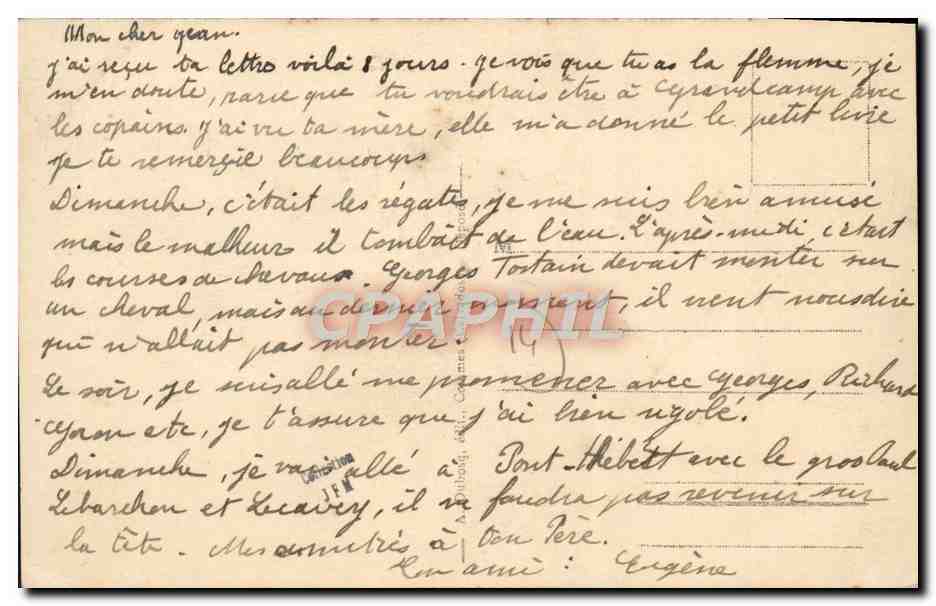 Mon cher Jean.
J'ai reçu ta lettre voilà 8 jours. Je vois que tu as la flemme, je
m'en doute, parce que tu voudrais être à Grandcamp avec
les copains. J'ai vu ta mère, elle m'a donné le petit livre
je te remercie beaucoup
Dimanche, c'était les régates, je me suis bien amusé
mais le malheur il tombait de l'eau. L'après-midi, c'etait
les courses de chevaux. Georges Tostain devait monter sur
un cheval, mais au dernier moment, il vient nous dire
qu'il n'allait pas monter.
14)
Le soir, je suis allé me promener avec Georges, Richard
etc, je t'assure que j'ai bien rigolé.
Dimanche, je vais allé à Pont-Hébert avec le gros Paul
et Lecavey, il ne faudra pas revenir sur
la tête. Mes amitiés à ton Père.
Ton ami : Eugène
Collection
J F M
A. Dubosq, édit.,
CPAPHIL